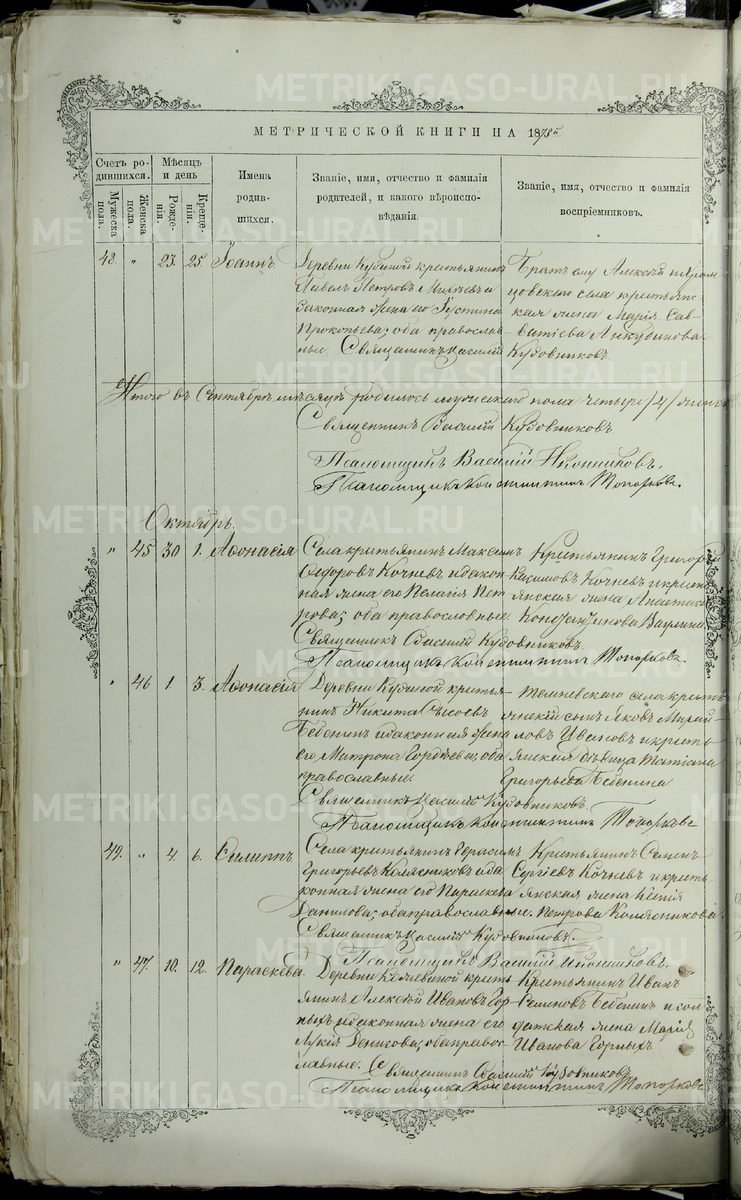 МЕТРИЧЕСКОЙ КНИГИ НА 1878
Счетъ ро-
дившихся.
Мужеска
пола.
Женска
пола.
Мѣсяцъ
и день
Рожде-
нія.
Креще-
нія.
Имена
родив-
шихся.
Званіе, имя, отчество и фамилія
родителей, и какого вѣроиспо-
вѣданія.
Званіе, имя, отчество и фамилія
воспріемниковъ.
48. " 23. 25. Іоаннъ.
Деревни Кудиной крестьянинъ
Павелъ Петровъ и
законная жена его Іустина
Прокопьева; оба православ-
ные. Священникъ Василій Кудовниковъ.
Братъ ему Алексѣй и
села крестьян-
ская жена Марія Сав-
ватіева
Итого въ Сентябрѣ мѣсяцѣ родилось мужескаго пола четыре /4/ женск
Священникъ Василій Кудовниковъ
Псаломщикъ Василій Иконниковъ.
Псаломщикъ Константинъ Топорковъ.
Октябрь.
" 45 30 1. Аѳонасія
Села крестьянинъ Максимъ
Ѳедоровъ Кочневъ и закон-
ная жена его Пелагія Пет-
рова; оба православные.
Священникъ Василій Кудовниковъ.
Псаломщикъ Константинъ Топорковъ.
Крестьянинъ Григорій
Касимовъ Кочневъ и кресть-
янская жена Анастасія
Константинова
" 46 1. 3. Аѳонасія
Деревни Кудиной кресть-
нинъ Никита Сысоевъ
Бебенинъ и законная жена
его Матрона Гордѣева; оба
православные.
Священникъ Василій Кудовниковъ.
Псаломщикъ Константинъ Топорковъ
села кресть-
янскій сынъ Яковъ
Ивановъ и кресть-
янская дѣвица Татіана
Григорьева Бебенина
49. " 4. 6. Филиппъ.
Села крестьянинъ Герасимъ
Григорьевъ Колясниковъ и за-
конная жена его Параскева
Данилова; оба православные.
Священникъ Василій Кудовниковъ.
Псаломщикъ Василій Иконниковъ.
Крестьянинъ Семенъ
Сергіевъ Кочневъ и кресть-
янская жена Ксенія
Петрова Колясникова
" 47. 10. 12. Параскева.
Деревни крестья-
янинъ Алексѣй Ивановъ Гор-
ныхъ и законная жена его
Денисова; оба правос-
лавные.
Священникъ Василій Кудовниковъ
Псаломщикъ Константинъ Топорковъ
Крестьянинъ Иванъ
Семеновъ Бебенинъ и сол-
датская жена Марія
Горныхъ
METRIKI.GASO-URAL.RU